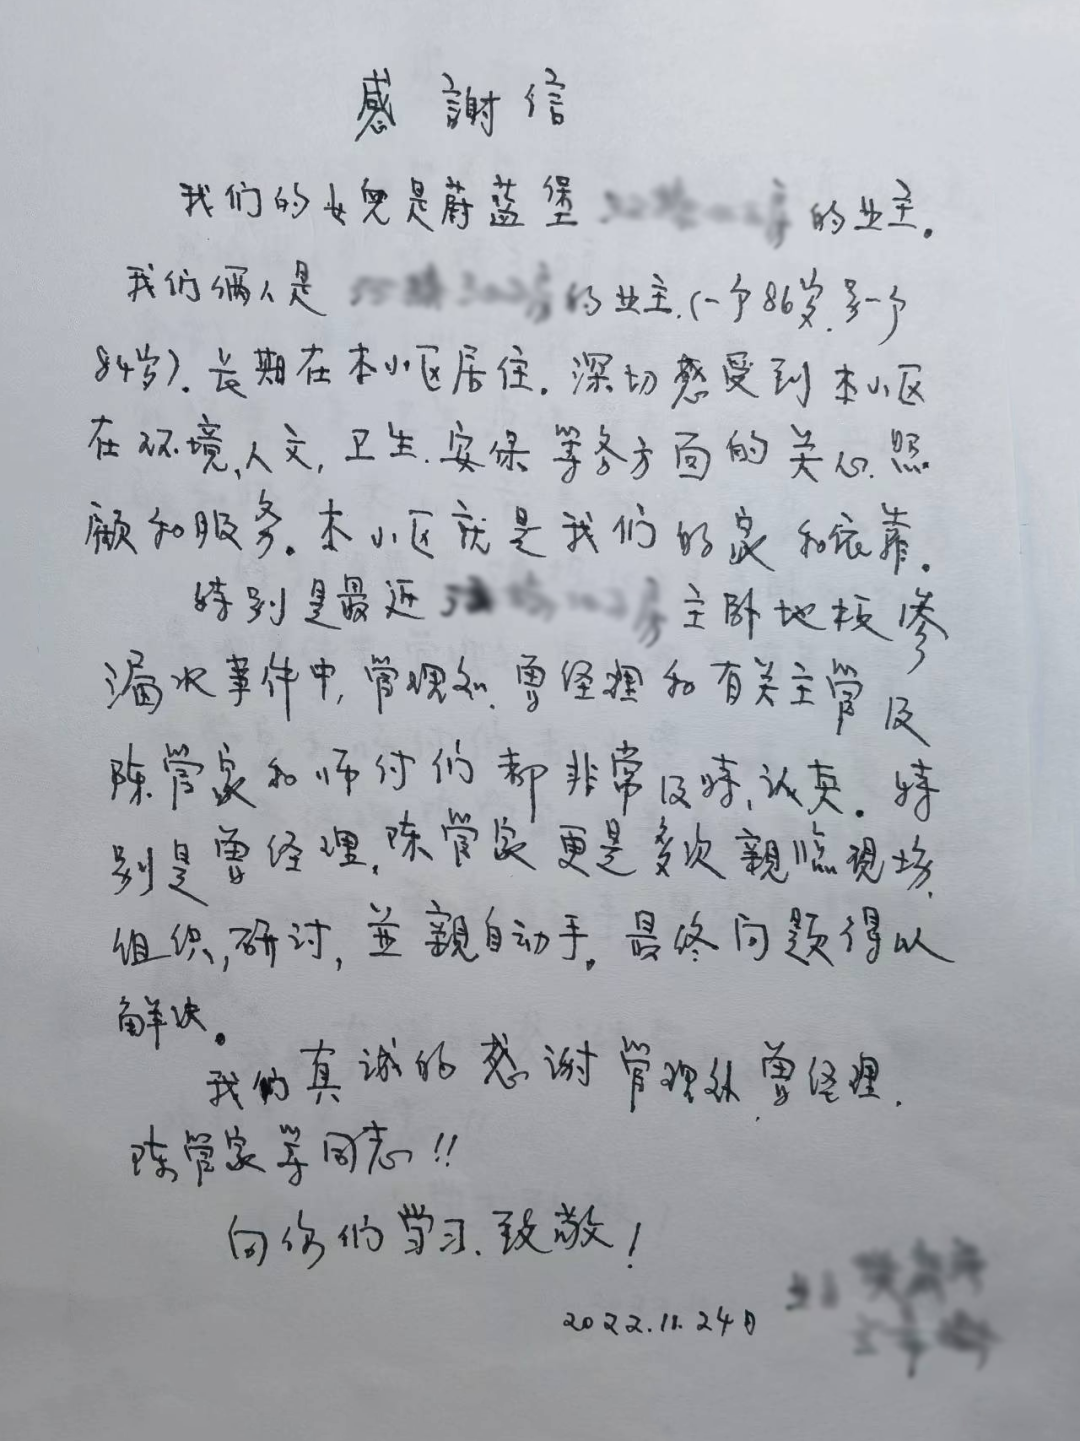 感謝信
我们的女兒是蔚蓝堡 的业主。
我们俩人是 的业主.(一个86岁.另一个
84岁).长期在本小区居住.深切感受到本小区
在环境,人文,卫生.安保等多方面的关心.照
顾和服务。本小区就是我们的家和依靠.
特别是最近 主卧地板渗
漏水事件中,管理处.曾经理和有关主管及
陈管家和师付们都非常及時、认真.特
别是曾经理.陈管家更是多次親临現场.
组织,研讨,並親自动手。最终问题得以
解决。
我们真诚的感谢管理处.曾经理.
陈管家等同志!!
向你们学习.致敬!
2022.11.24日